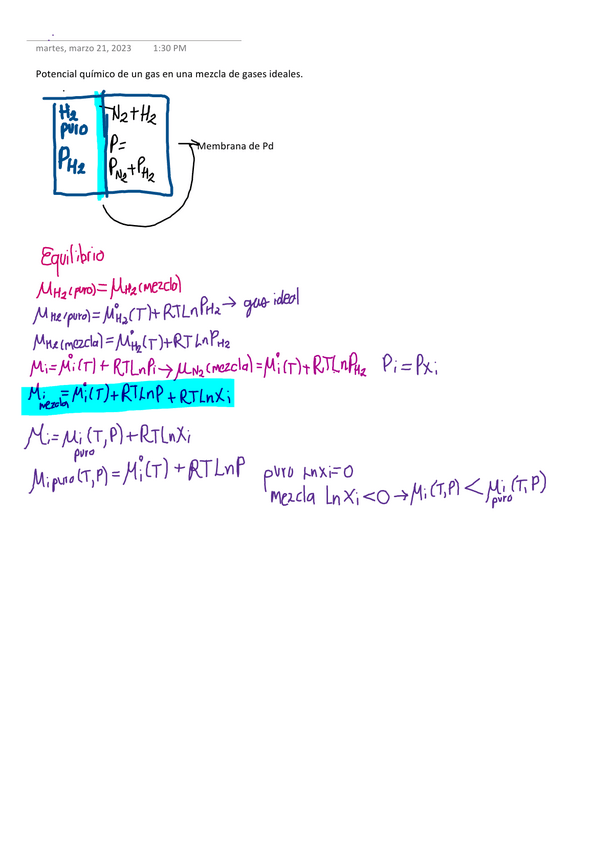 martes, marzo 21, 2023 1:30 PM
Potencial químico de un gas en una mezcla de gases ideales.
H₂ puro
P_H₂
N₂+H₂
P=
P_N₂+P_H₂
Membrana de Pd
Equilibrio
μ_H₂(puro)=μ_H₂(mezcla)
μ_H₂(puro)=μ°_H₂(T)+RTLnP_H₂→ gas ideal
μ_H₂(mezcla)=μ°_H₂(T)+RTLnP_H₂
μi=μ°i(T)+RTLnPi→μ_N₂(mezcla)=μ°i(T)+RTLnP_H₂ Pi=Pxi
μi mezcla=μ°i(T)+RTLnP+RTLnXi
μi=μi puro(T,P)+RTLnXi
μi puro(T,P)=μ°i(T)+RTLnP
puro Lnxi=0
mezcla LnXi<0→μi(T,P)<μi puro(T,P)